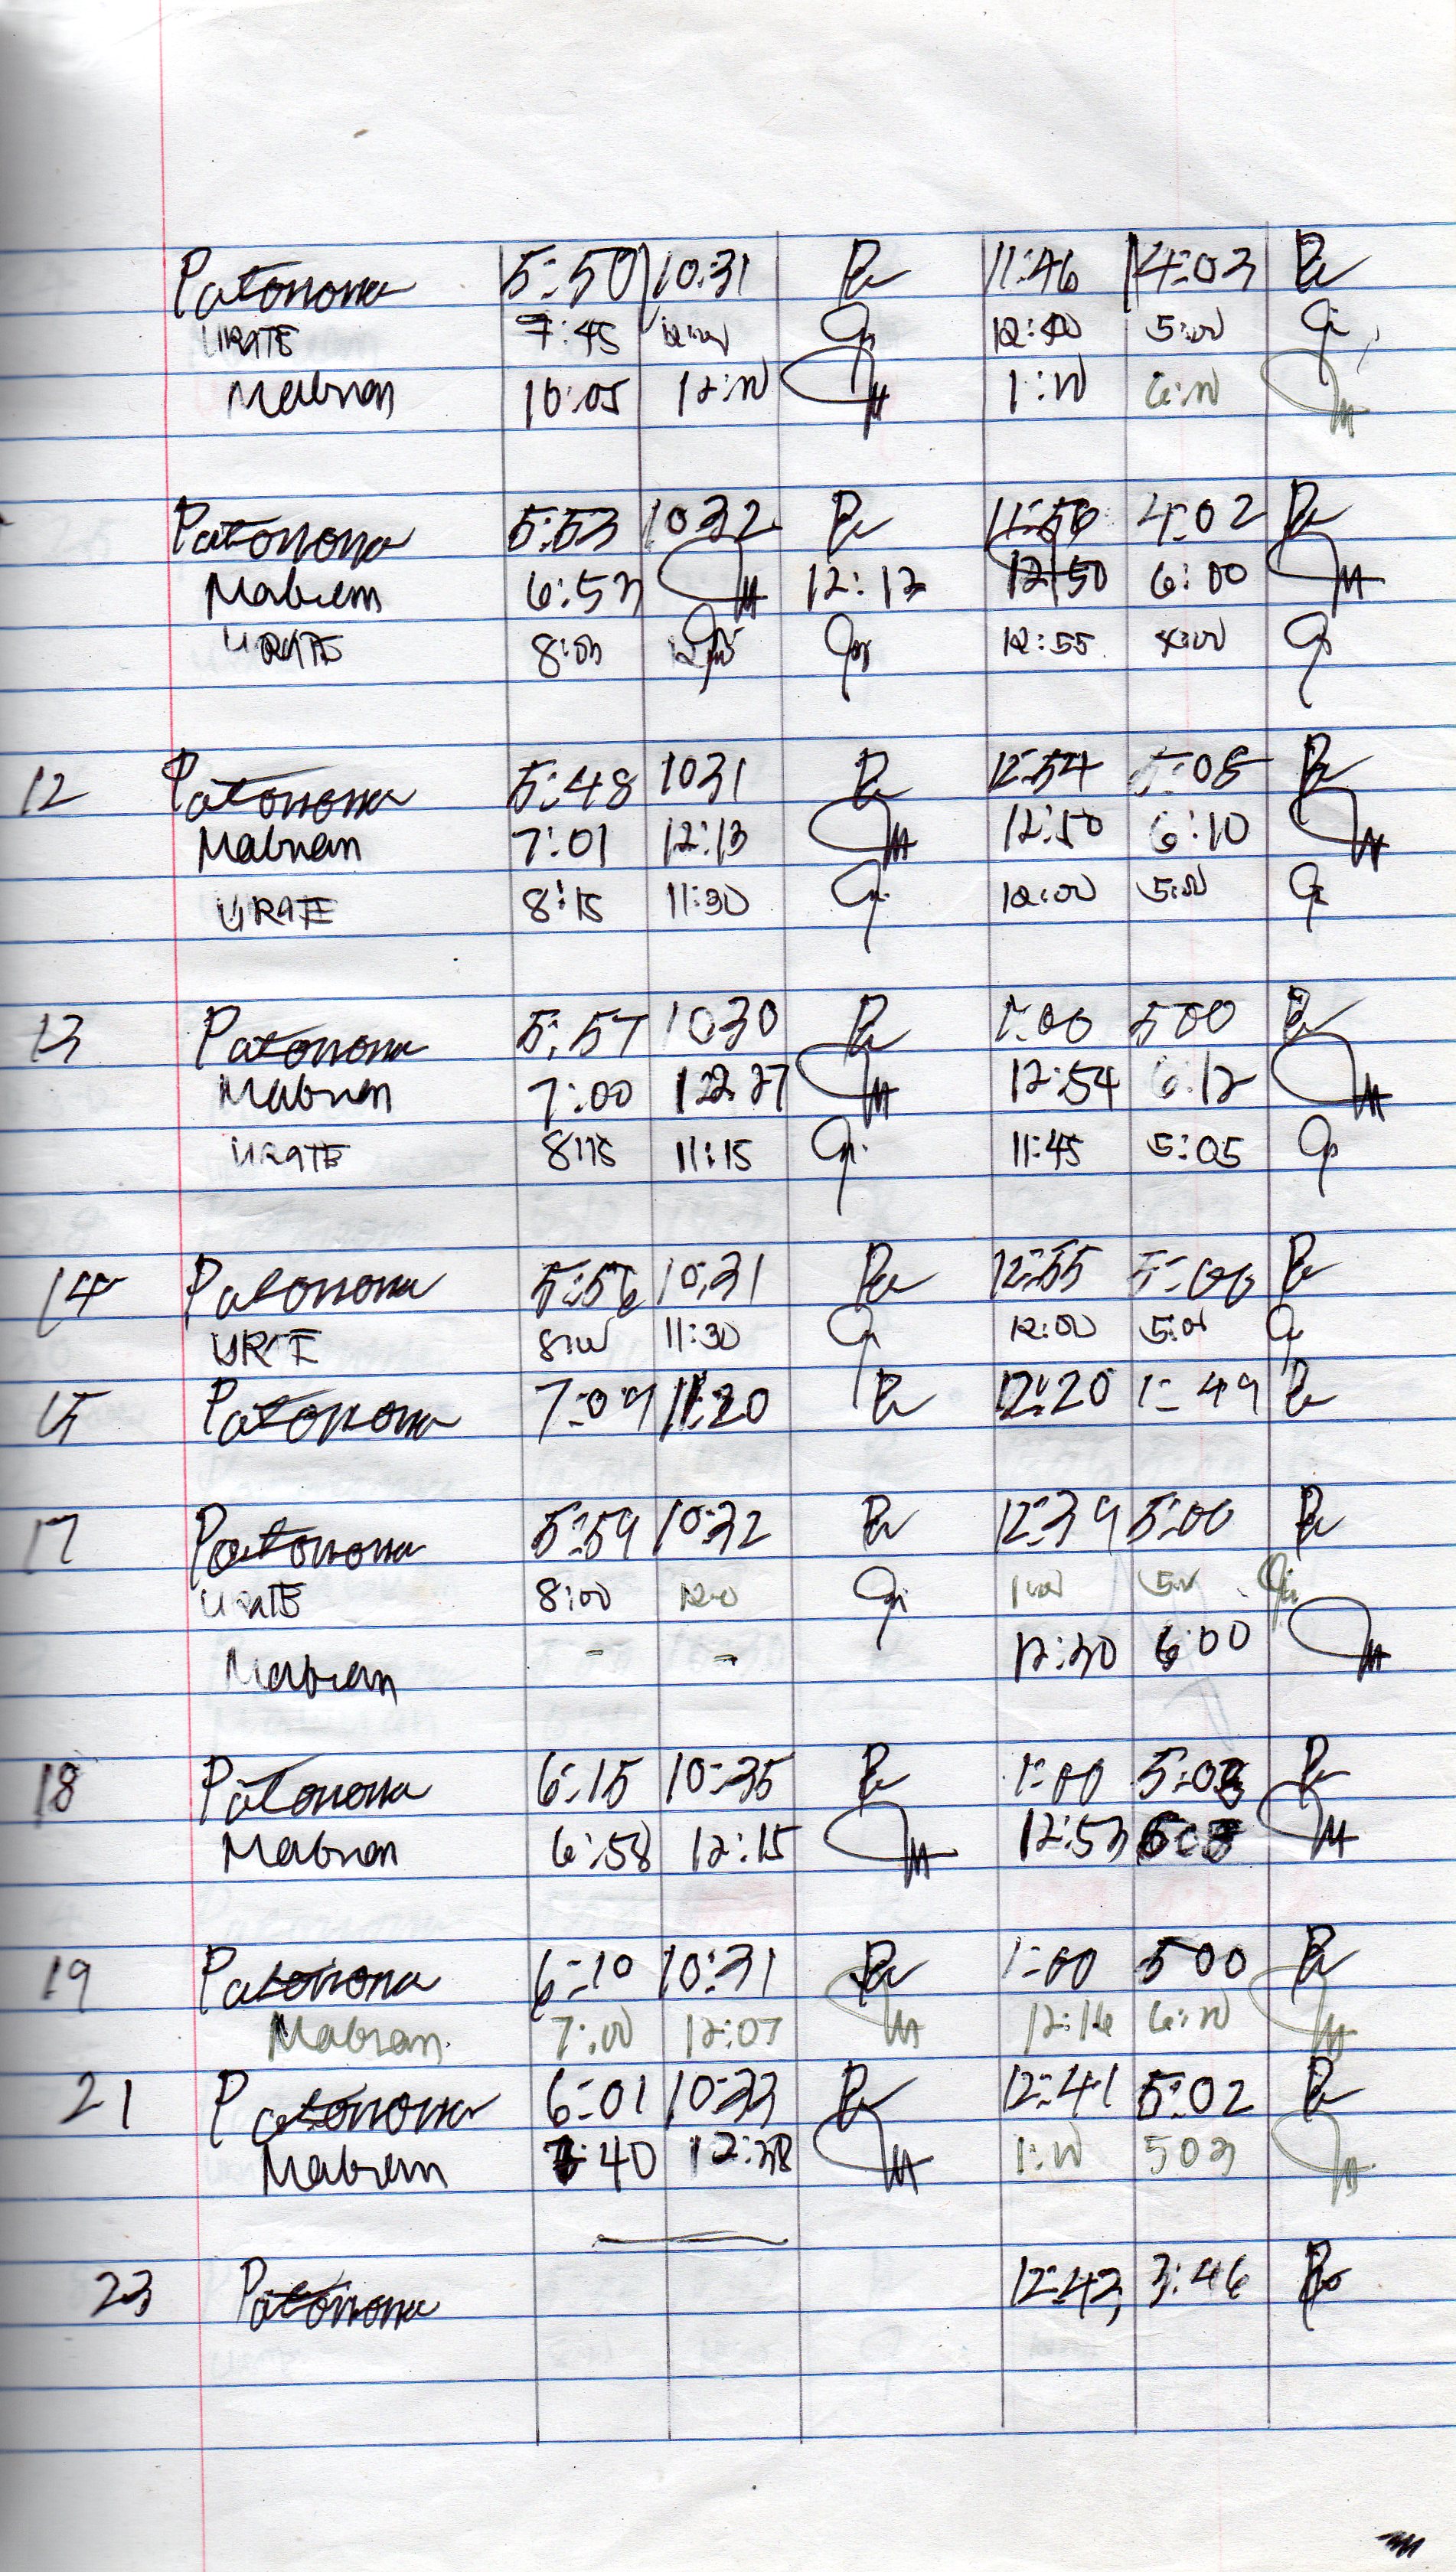 Patonona 5:50 10:31 11:46 4:03
URATE 7:45 12:00 12:40 5:00
Mabran 10:05 12:10 1:10 6:10
Patonona 5:53 1032 11:56 4:02
Mabran 6:53 12:12 12:50 6:00
URATE 8:00 12:55
12 Patonona 5:48 1031 12:54 5:05
Mabran 7:01 12:13 12:50 6:10
URATE 8:15 11:30 12:00 5:00
13 Patonona 5:57 1030 1:00 500
Mabran 7:00 12:27 12:54 6:12
URATE 8:15 11:15 11:45 5:05
14 Patonona 5:56 10:31 12:55 5:00
URTE 8:00 11:30 12:00 5:01
15 Patonona 7:09 11:20 12:20 1:49
17 Patonona 5:59 10:32 12:39 5:00
URATE 8:00 1:00 5:00
Mabran - - 12:30 6:00
18 Patonona 6:15 10:35 1:00 5:03
Mabran 6:58 12:15 12:53
19 Patonona 6:10 10:31 1:00 500
Mabran 7:00 12:07 12:16 6:10
21 Patonona 6:01 10:33 12:41 5:02
Mabran 7:40 12:38 1:10 503
23 Patonona 12:42 3:46